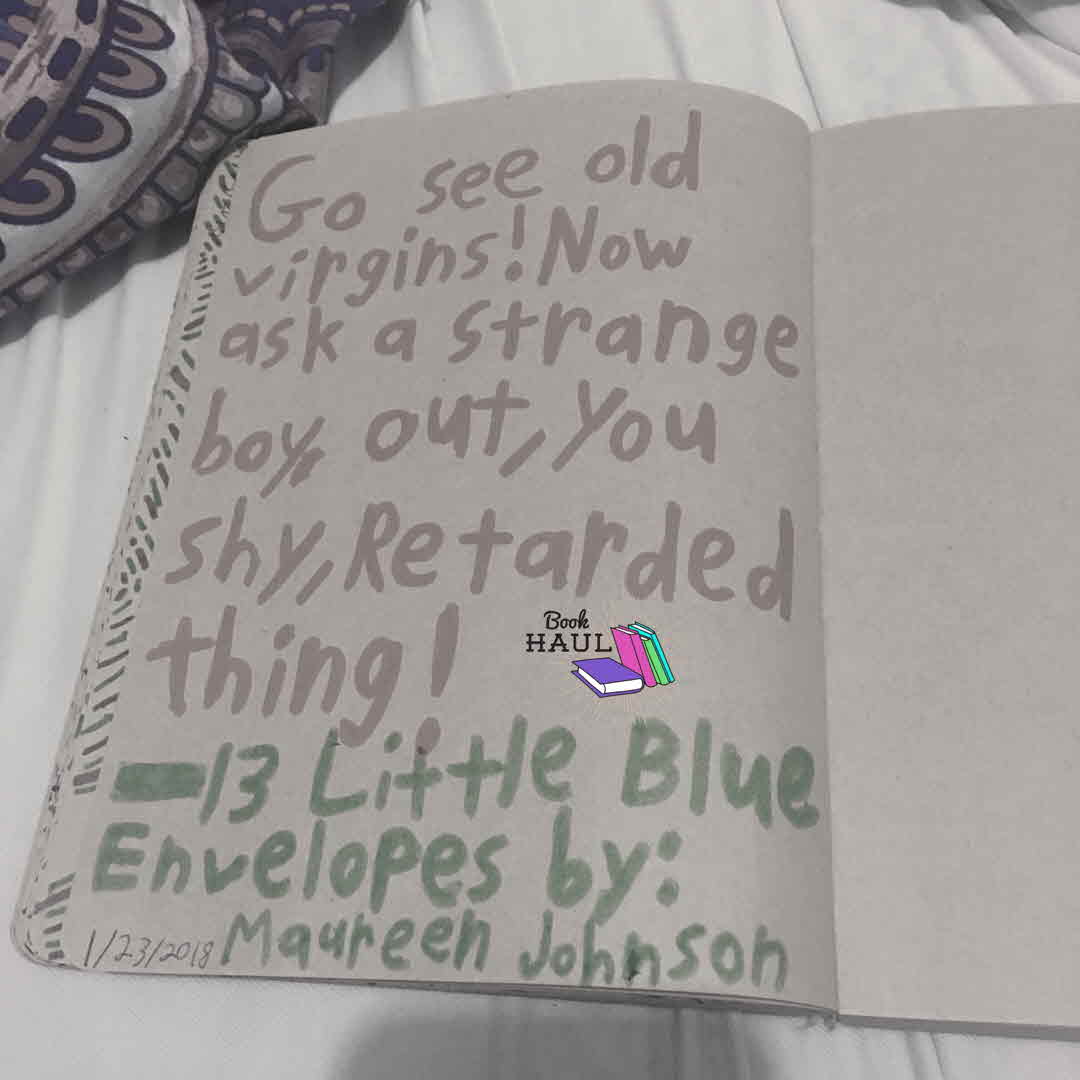 Go see old
virgins! Now
ask a strange
boy, out, you
shy, Retarded
thing!
Book
HAUL
—13 Little Blue
Envelopes by:
Maureen Johnson
1/23/2018